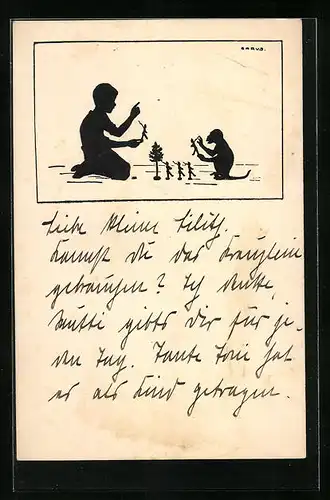 CARUS.
Liebe kleine Lilith.
Kannst Du das Kränzlein
gebrauchen? Ich denke,
Mutti gibts Dir für je-
den Tag. Tante Toni hat
es als Kind getragen.